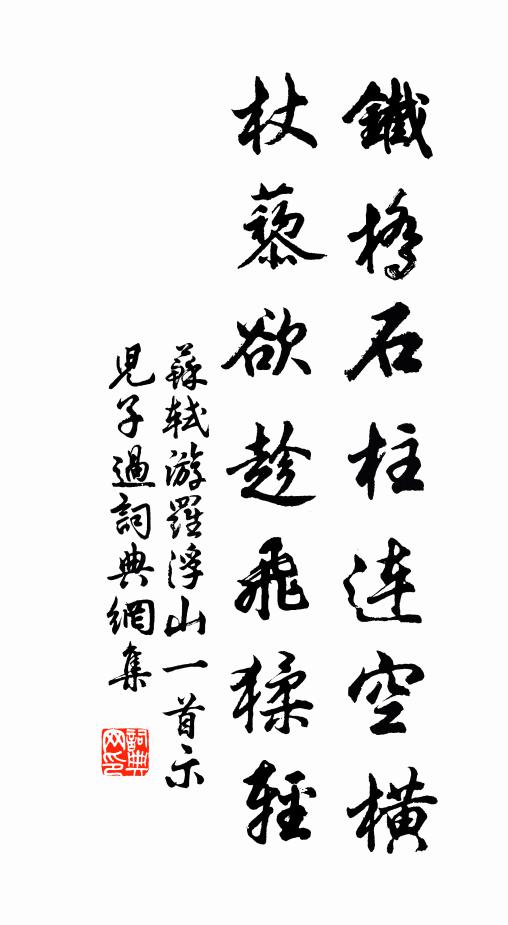 鐵橋石柱連空橫
杖藜欲趁飛猱輕
蘇軾游羅浮山一首示
兒子過詞典網集
詞典網印